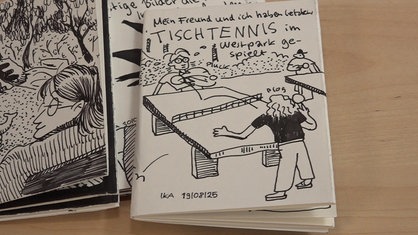 tige Bilder die
Mein Freund und ich haben letztens
TISCHTENNIS im
Weilpark ge-
spielt
Pluck
PLOG
IKA 19/08/25